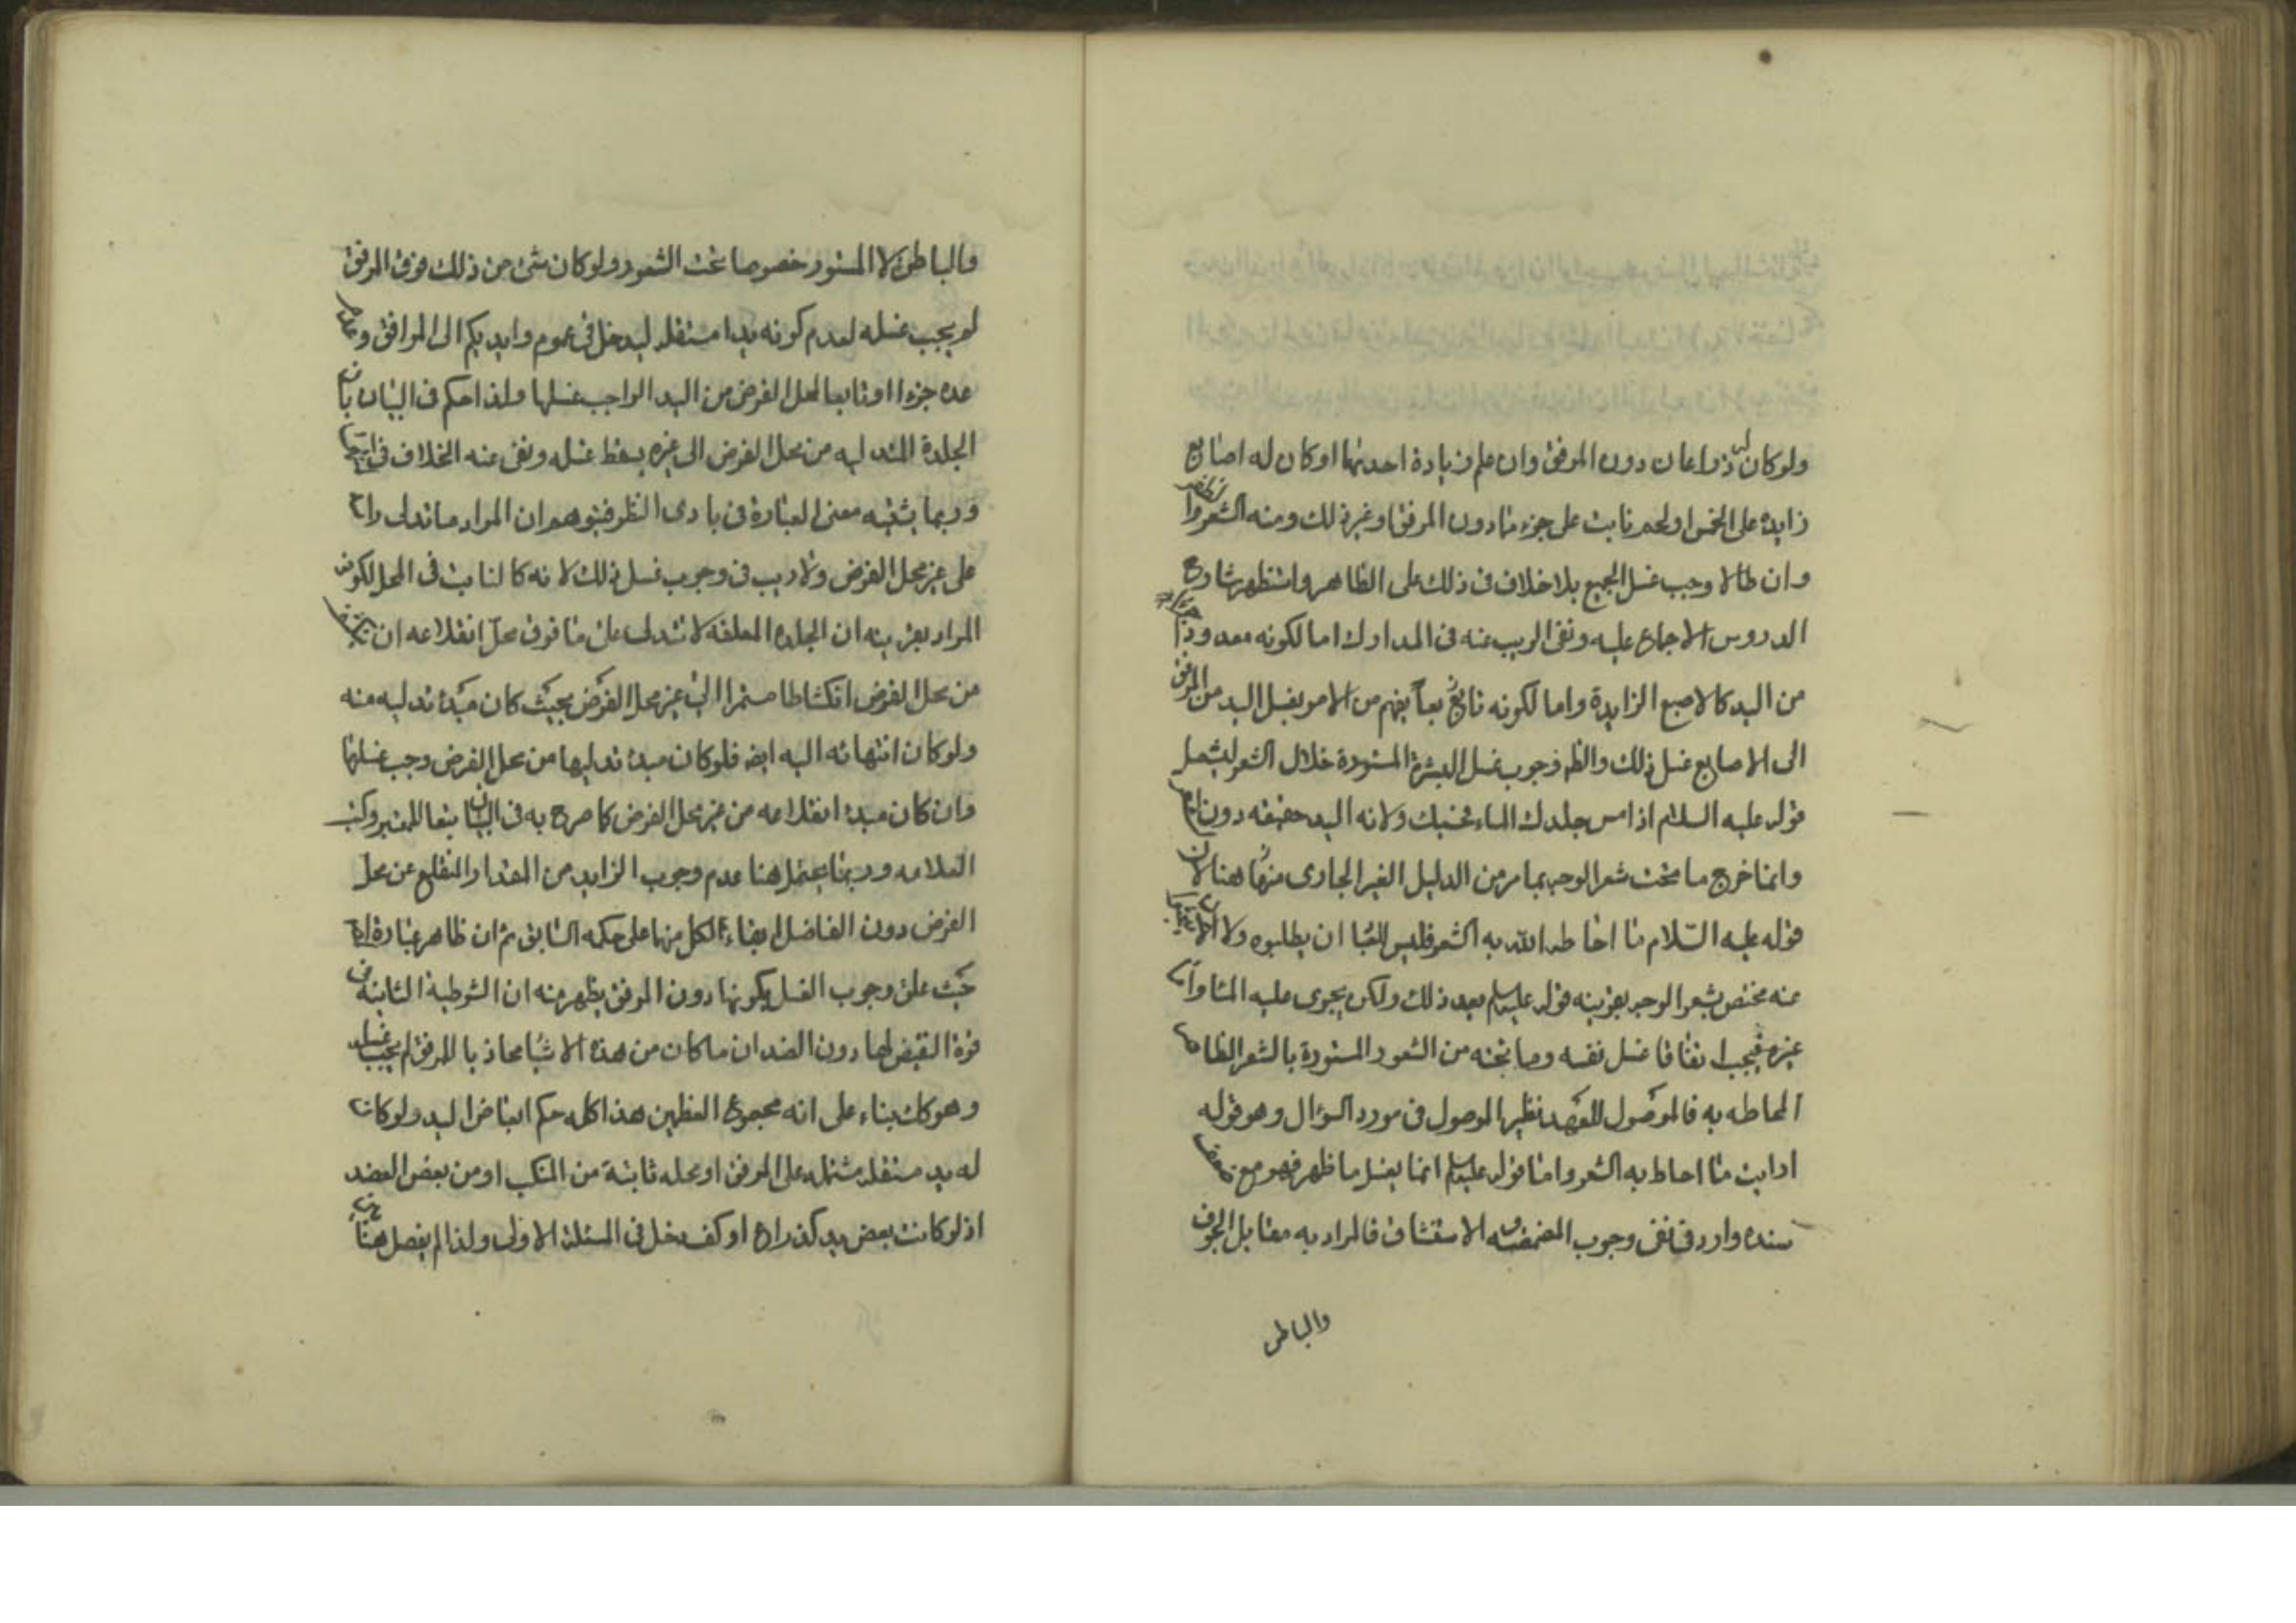 ولو كان له ذراعان دون المرفق وان علم زيادة احديهما او كان له اصابع
زايدة على الخمس او لحم نابت على جزء مادون المرفق او غير ذلك ومنه الشعر والظفر
وان طالا وجب غسل الجميع بلا خلاف فى ذلك على الظاهر واستظهر شارح
الدروس الاجماع عليه ونفى الريب عنه فى المدارك اما لكونه معدودا
من اليد كالاصبع الزايدة واما لكونه تابع يفهم من الامر بغسل اليد من المرفق
الى الاصابع غسل ذلك والظ وجوب غسل البشرة المستورة خلال الشعر ليشمل
قوله عليه السلام اذا مس جلدك الماء فحسبك ولانه اليد حقيقه دون
وانما خرج ما تحت شعر الوجه بما مر من الدليل الغير الجارى هنا لان
قوله عليه السلام ما احاط الله به الشعر فليس للعباد ان يطلبوه ولا
عنه مختص بشعر الوجه بقرينه قوله عليه السلام بعد ذلك ولكن يجرى عليه الماء واما
غيره فيجب اتفاقا غسل نفسه وما تحته من الشعور المستورة بالشعر الظاهر
المحاطه به فالموصول للعهد نظير الموصول فى مورد السؤال وهو قوله
ارايت ما احاط به الشعر واما قوله عليه السلام انما يغسل ما ظهر فهو مع ضعف
سنده وارد فى نفى وجوب المضمضه والاستنشاق فالمراد به مقابل الجوف
والباطن
والباطن لا المستور خصوصا تحت الشعور ولو كان شئ من ذلك فوق المرفق
لم يجب غسله لعدم كونه يدا مستقله ليدخل فى عموم وايديكم الى المرافق وعدم
عده جزءا او تابعا لمحل الفرض من اليد الواجب غسلها ولذا حكم فى البيان بان
الجلدة المتدليه من محل الفرض الى غيره يسقط غسله ونفى عنه الخلاف فى
وربما يشتبه معنى العبارة فى بادى النظر فيتوهم ان المراد ما تدلى راح
على غير محل الفرض ولا ريب فى وجوب غسل ذلك لانه كالنابت فى المحل لكون
المراد بقرينه ان الجلدة المعلقه لا تتدلى على ما فوق محل انقلاعه ان
من محل الفرض انكشاطا مستمرا الى غير محل الفرض بحيث كان مبدء تدليه منه
ولو كان انتهائه اليه ايضا فلو كان مبدء تدليها من محل الفرض وجب غسلها
وان كان مبدء انقلاعه من غير محل الفرض كما صرح به فى البيان تبعا للمعتبر وكتب
العلامه وربما يحتمل هنا عدم وجوب الزايد من المقدار المنقلع عن محل
الفرض دون الفاضل لبقاء الكل منهما على حكمه السابق ثم ان ظاهر عبارة
حيث علق وجوب الغسل بكونها دون المرفق يظهر منه ان الشرطية الثانية فى
قوة النقيض لها دون الضد ان ما كان من هذه الاشياء محاذيا للمرفق لم يجب غسله
وهو كك بناء على انه مجموع العظمين هذا كله حكم ابعاض اليد ولو كان
له يد مستقله مشتمله على المرفق او محله ثابتة من المنكب او من بعض العضد
اذ لو كانت بعض يد كذراع او كف دخل فى المسئلة الاولى ولذا لم يفصل هنا